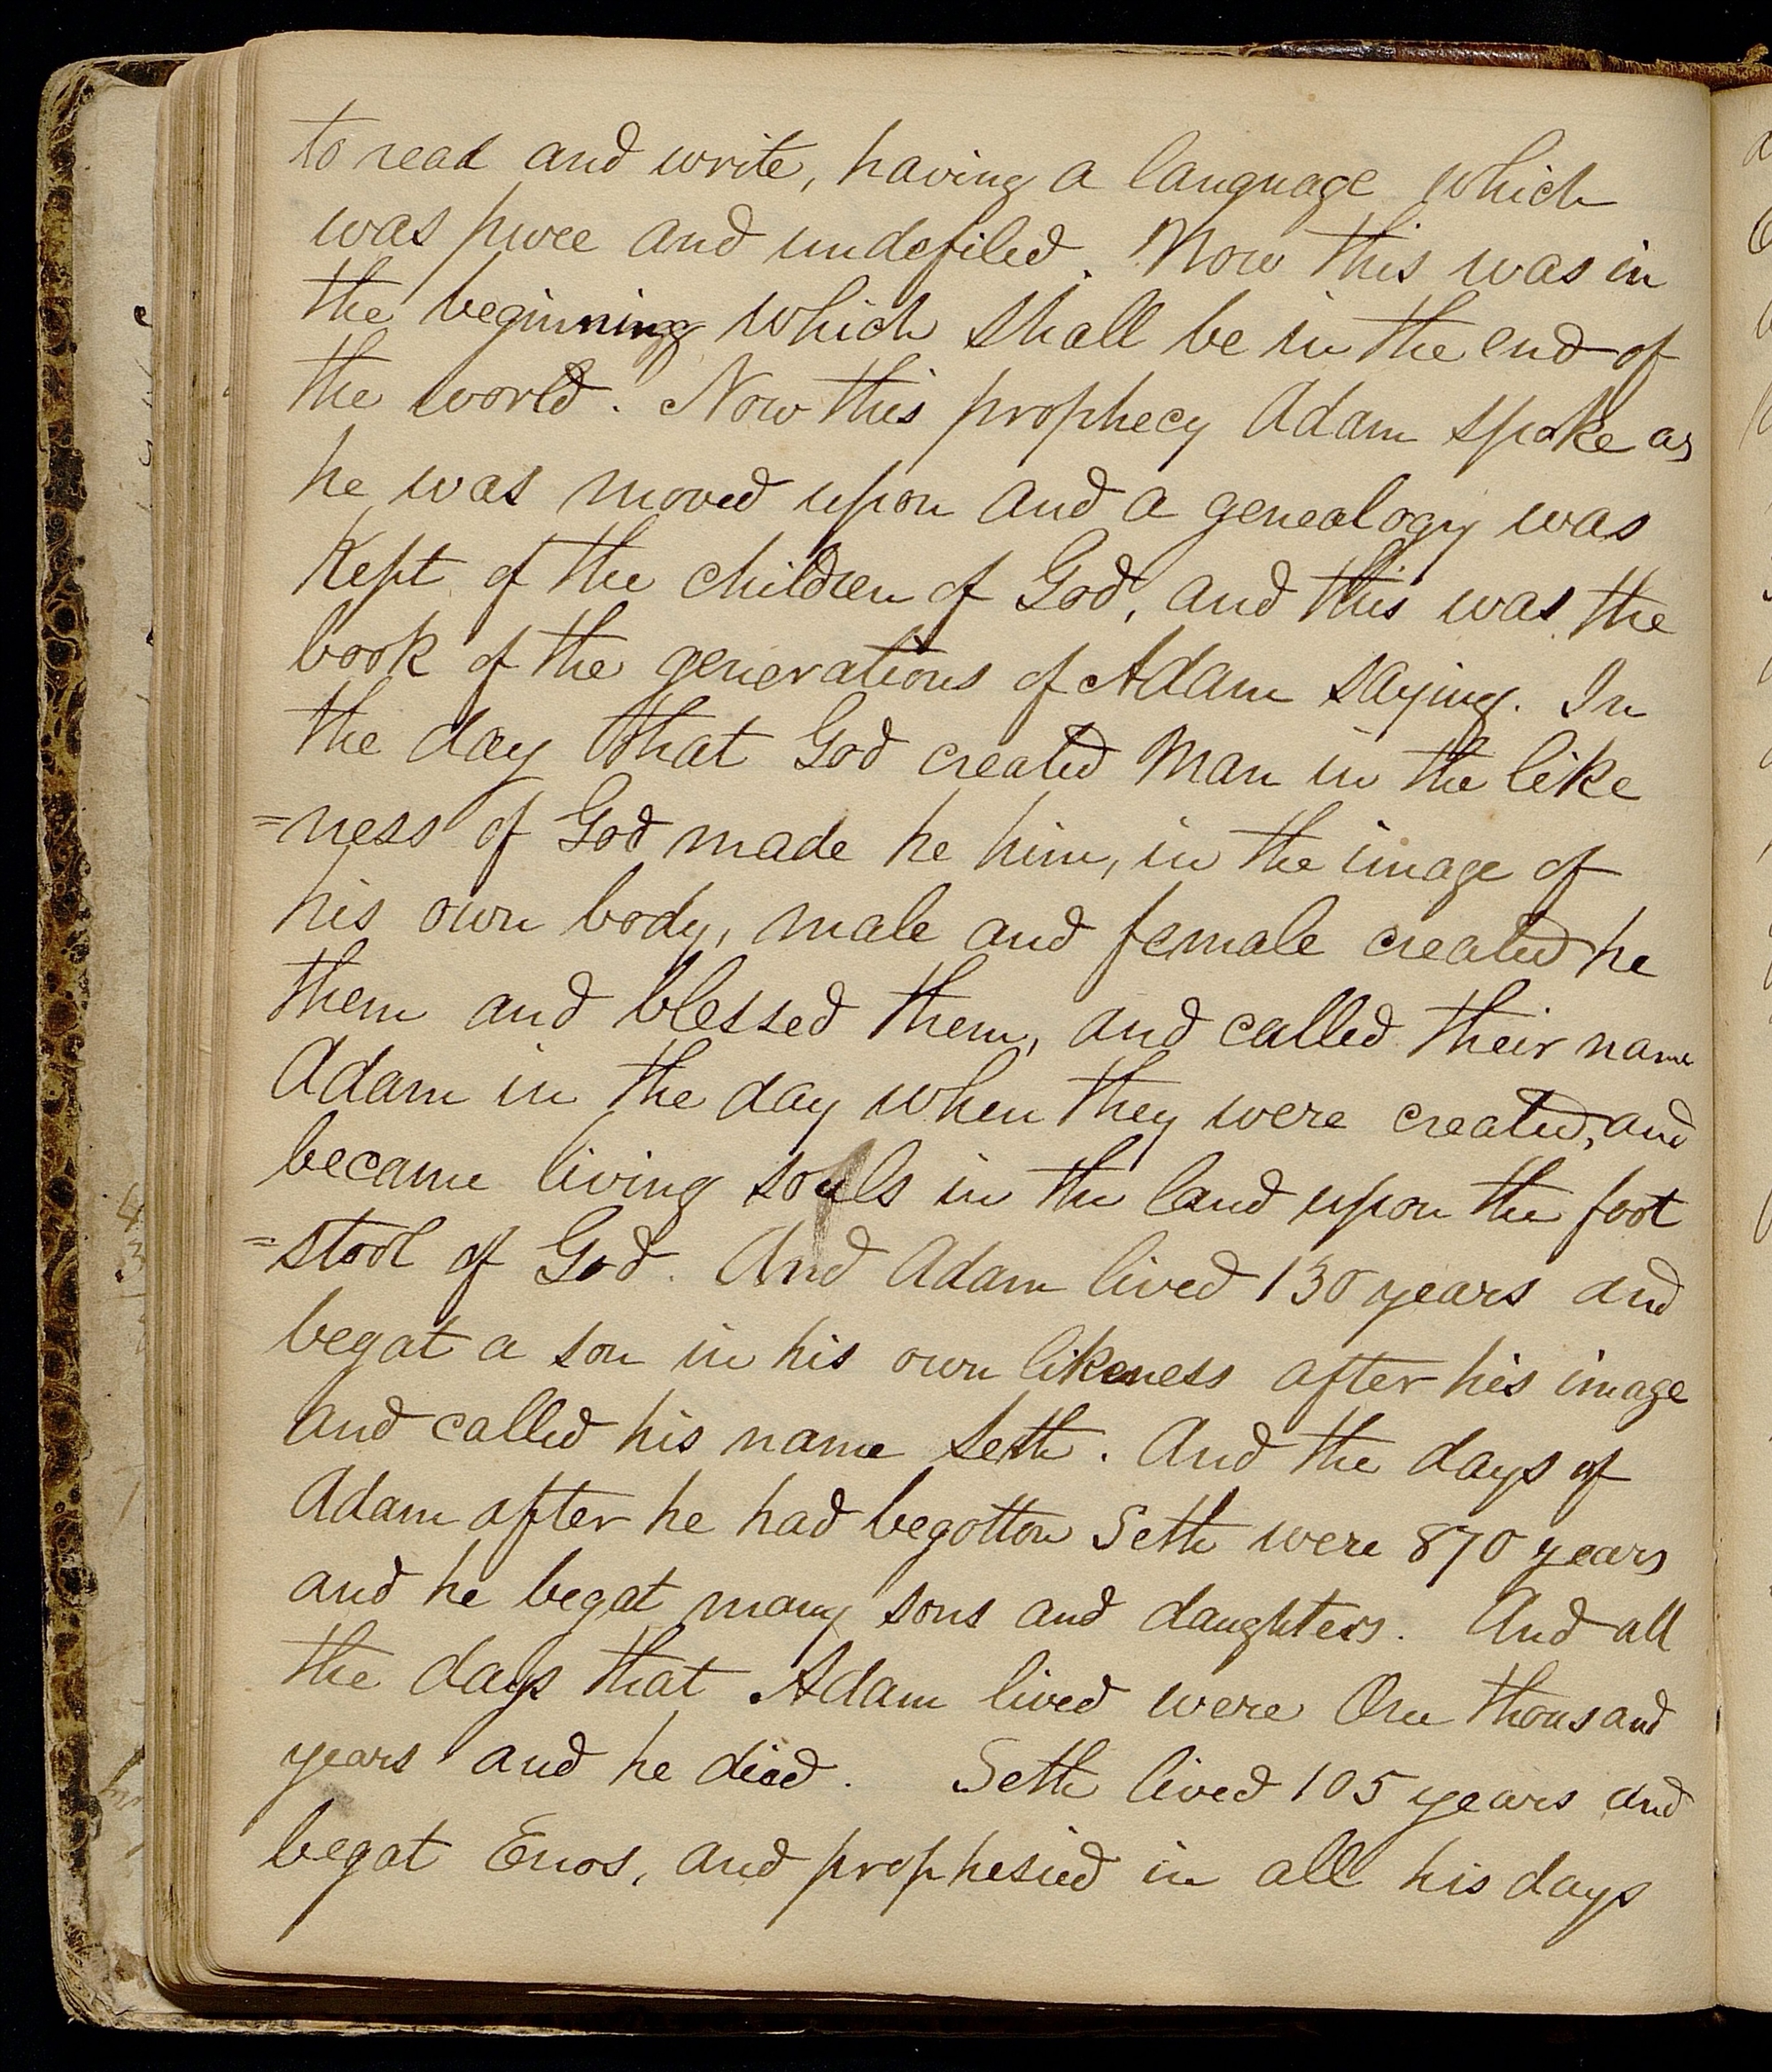 to read and write, having a language which
was puree and undefiled. Now this was in
the beginning which shall be in the end of
the world. Now this prophecy Adam spoke as
he was moved upon and a genealogy was
Kept of the children of God, and this was the
book of the generations of Adam saying. In
the day that God created Man in the like
=ness of God made he him, in the image of
his own body, male and female created he
them and blessed them, and called their name
Adam in the day when they were created, and
became living souls in the land upon the foot
=stool of God. And Adam lived 130 years and
begat a son in his own likeness after his image
and called his name Seth. And the days of
Adam after he had begotton Seth were 870 years
and he begat many sons and daughters. And all
the days that Adam lived were One thousand
years and he died. Seth lived 105 years and
begat Enos, and prophesied in all his days